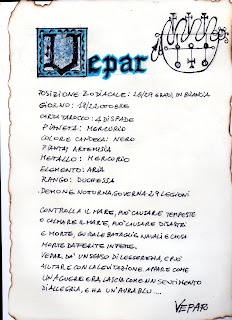 Vepar
POSIZIONE ZODIACALE: 25/29 GRADI IN BILANCIA
GIORNO: 18/22 OTTOBRE
CARTA TAROCCO: 4 DI SPADE
PIANETA: MERCURIO
COLORE CANDELA: NERO
PIANTA: ARTEMISIA
METALLO: MERCURIO
ELEMENTO: ARIA
RANGO: DUCHESSA
DEMONE NOTTURNA, GOVERNA 29 LEGIONI
CONTROLLA IL MARE, PUÒ CAUSARE TEMPESTE
O CALMARE IL MARE, PUÒ CAUSARE DISASTRI
E MORTE, GUIDA LE BATTAGLIE NAVALI E CAUSA
MORTE DA FERITE INFETTE.
VEPAR DÀ UN SENSO DI LEGGEREZZA, E PUÒ
AIUTARE CON LA LEVITAZIONE. APPARE COME
UN' E LASCIA COME UN SENTIMENTO
DI ALLEGRIA, E HA UN'AURA BLU...
VEPAR